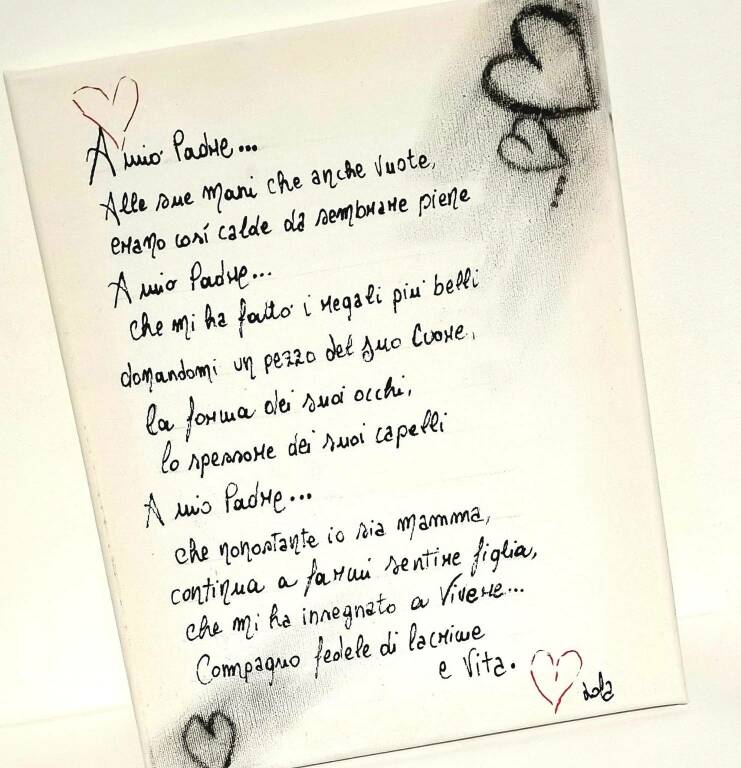 A mio Padre...
Alle sue mani che anche vuote,
erano così calde da sembrare piene
A mio Padre...
che mi ha fatto i regali più belli
donandomi un pezzo del suo Cuore,
la forma dei suoi occhi,
lo spessore dei suoi capelli
A mio Padre...
che nonostante io sia mamma,
continua a farmi sentire figlia,
che mi ha insegnato a Vivere...
Compagno fedele di lacrime
e Vita.
Lola